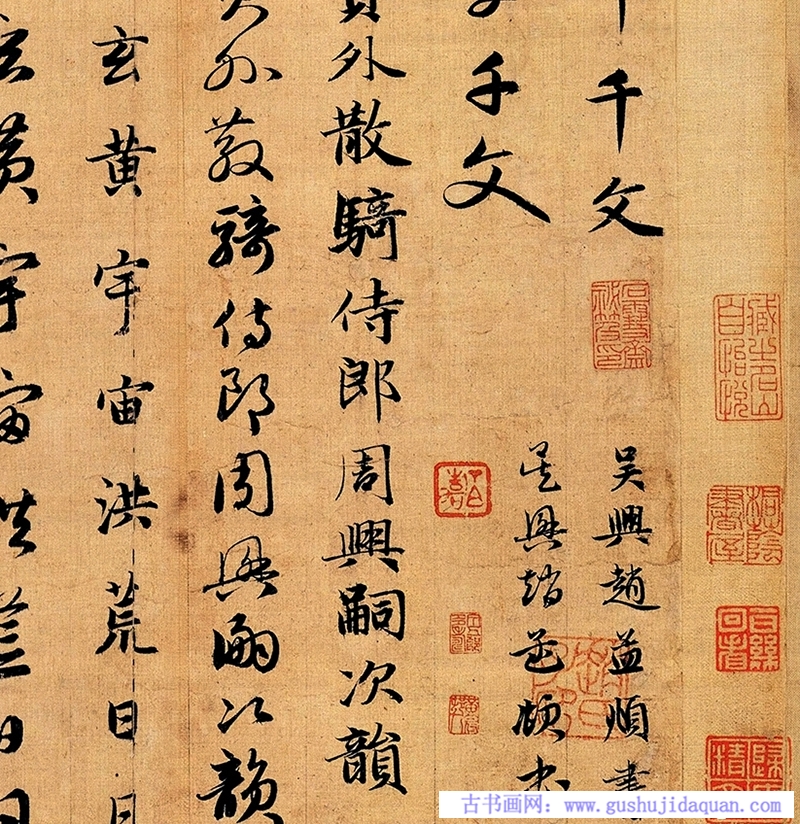 千文
吳興趙孟頫書
千文
吳興趙孟頫書
員外散騎侍郎周興嗣次韻
員外散騎侍郎周興嗣次韻
玄黃宇宙洪荒日月
玄黃宇宙洪荒日月
桐陰書屋
古书画网：www.gushujidaquan.com